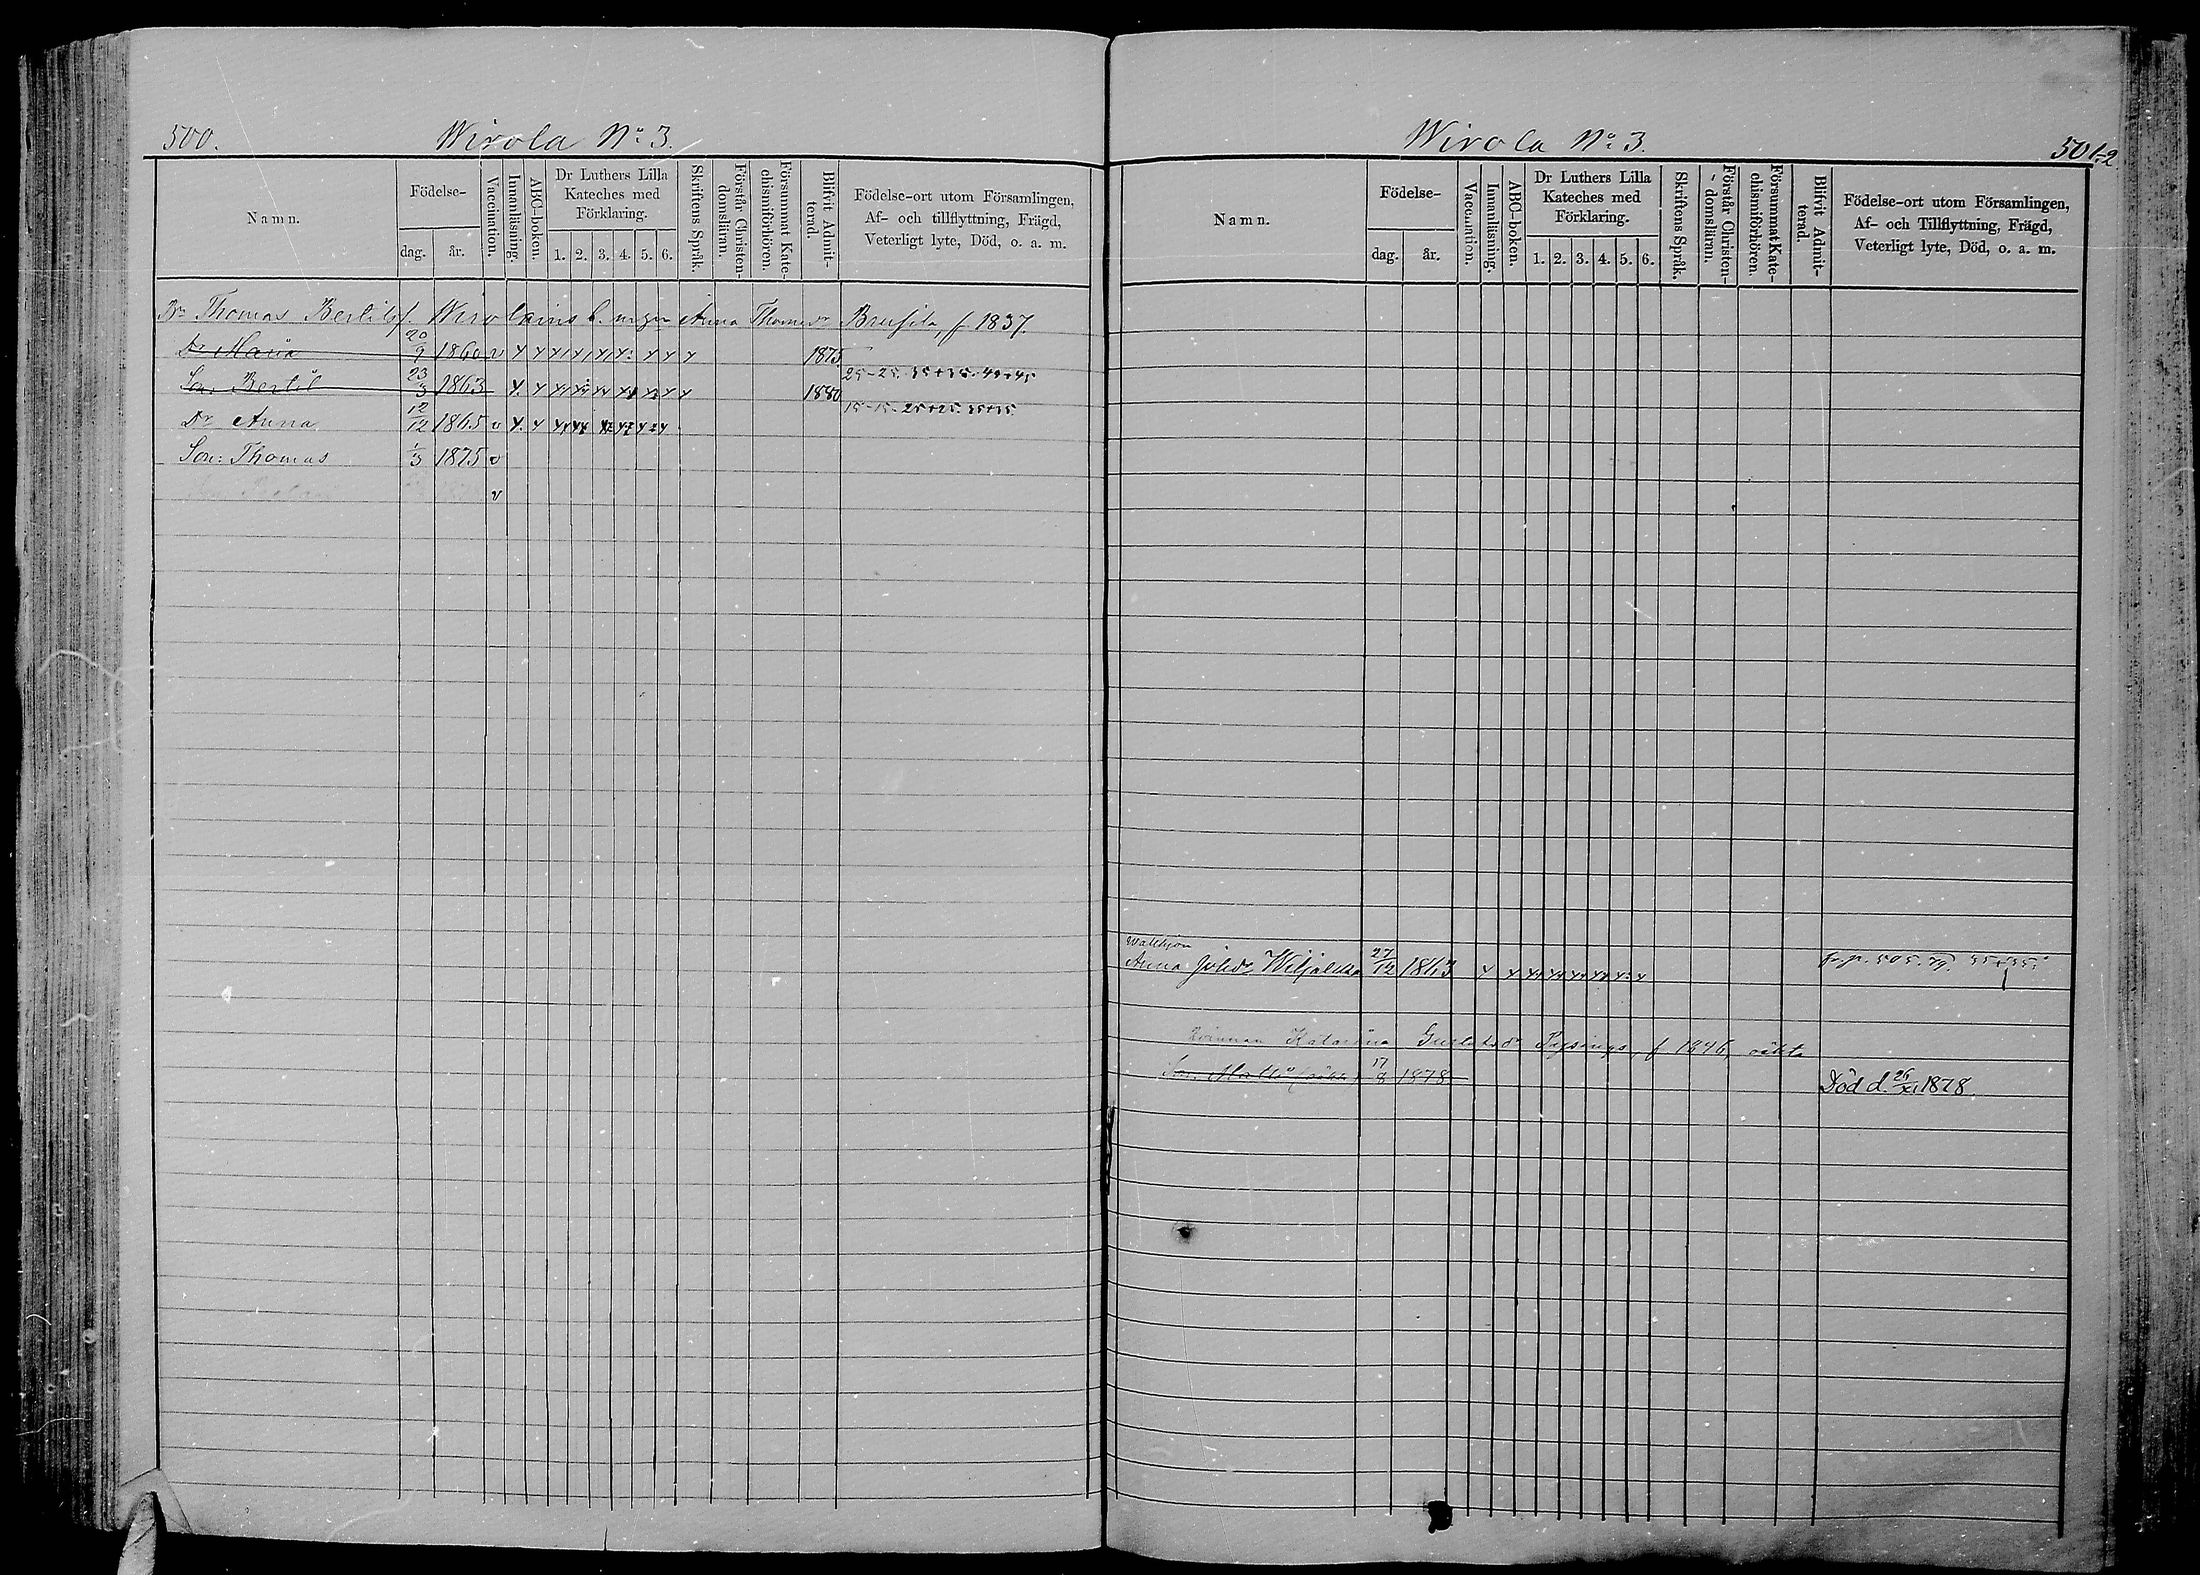 500.
Wirola No 3.
Namn.
Födelse-
dag. år.
Vaccination.
Innanläsning.
ABC-boken.
Dr Luthers Lilla Kateches med Förklaring.
1. 2. 3. 4. 5. 6.
Skriftens Språk.
Förstår Christendomsläran.
Försummat Katechismiförhören.
Blifvit Admitterad.
Födelse-ort utom Församlingen,
Af- och tillflyttning, Frägd,
Veterligt lyte, Död, o. a. m.
Thomas Bertilsf. Wirolains Anna Thomdr f. 1837.
Dr Maria 20/9 1860 v 1875
Son: Bertil 23/3 1863 1880
25-25. 35+35. 45+45
Dr Anna 12/12 1865 v
15-15. 25+25. 35+35
Son: Thomas 1/3 1875 v
v
Wirola No 3.
501-2
Namn.
Födelse-
dag. år.
Vaccination.
Innanläsning.
ABC-boken.
Dr Luthers Lilla Kateches med Förklaring.
1. 2. 3. 4. 5. 6.
Skriftens Språk.
Förstår Christen--domsläran.
Försummat Katechismiförhören.
Blifvit Admitterad.
Födelse-ort utom Församlingen,
Af- och Tillflyttning, Frägd,
Veterligt lyte, Död, o. a. m.
Anna Johdr 27/12 1863 fr. p. 505. 79. 35+35
Qvinnan Katarina f 1846, oäkta
Son: Matts (oäkta) 17/8 1878
Död d. 26/XI 1878.